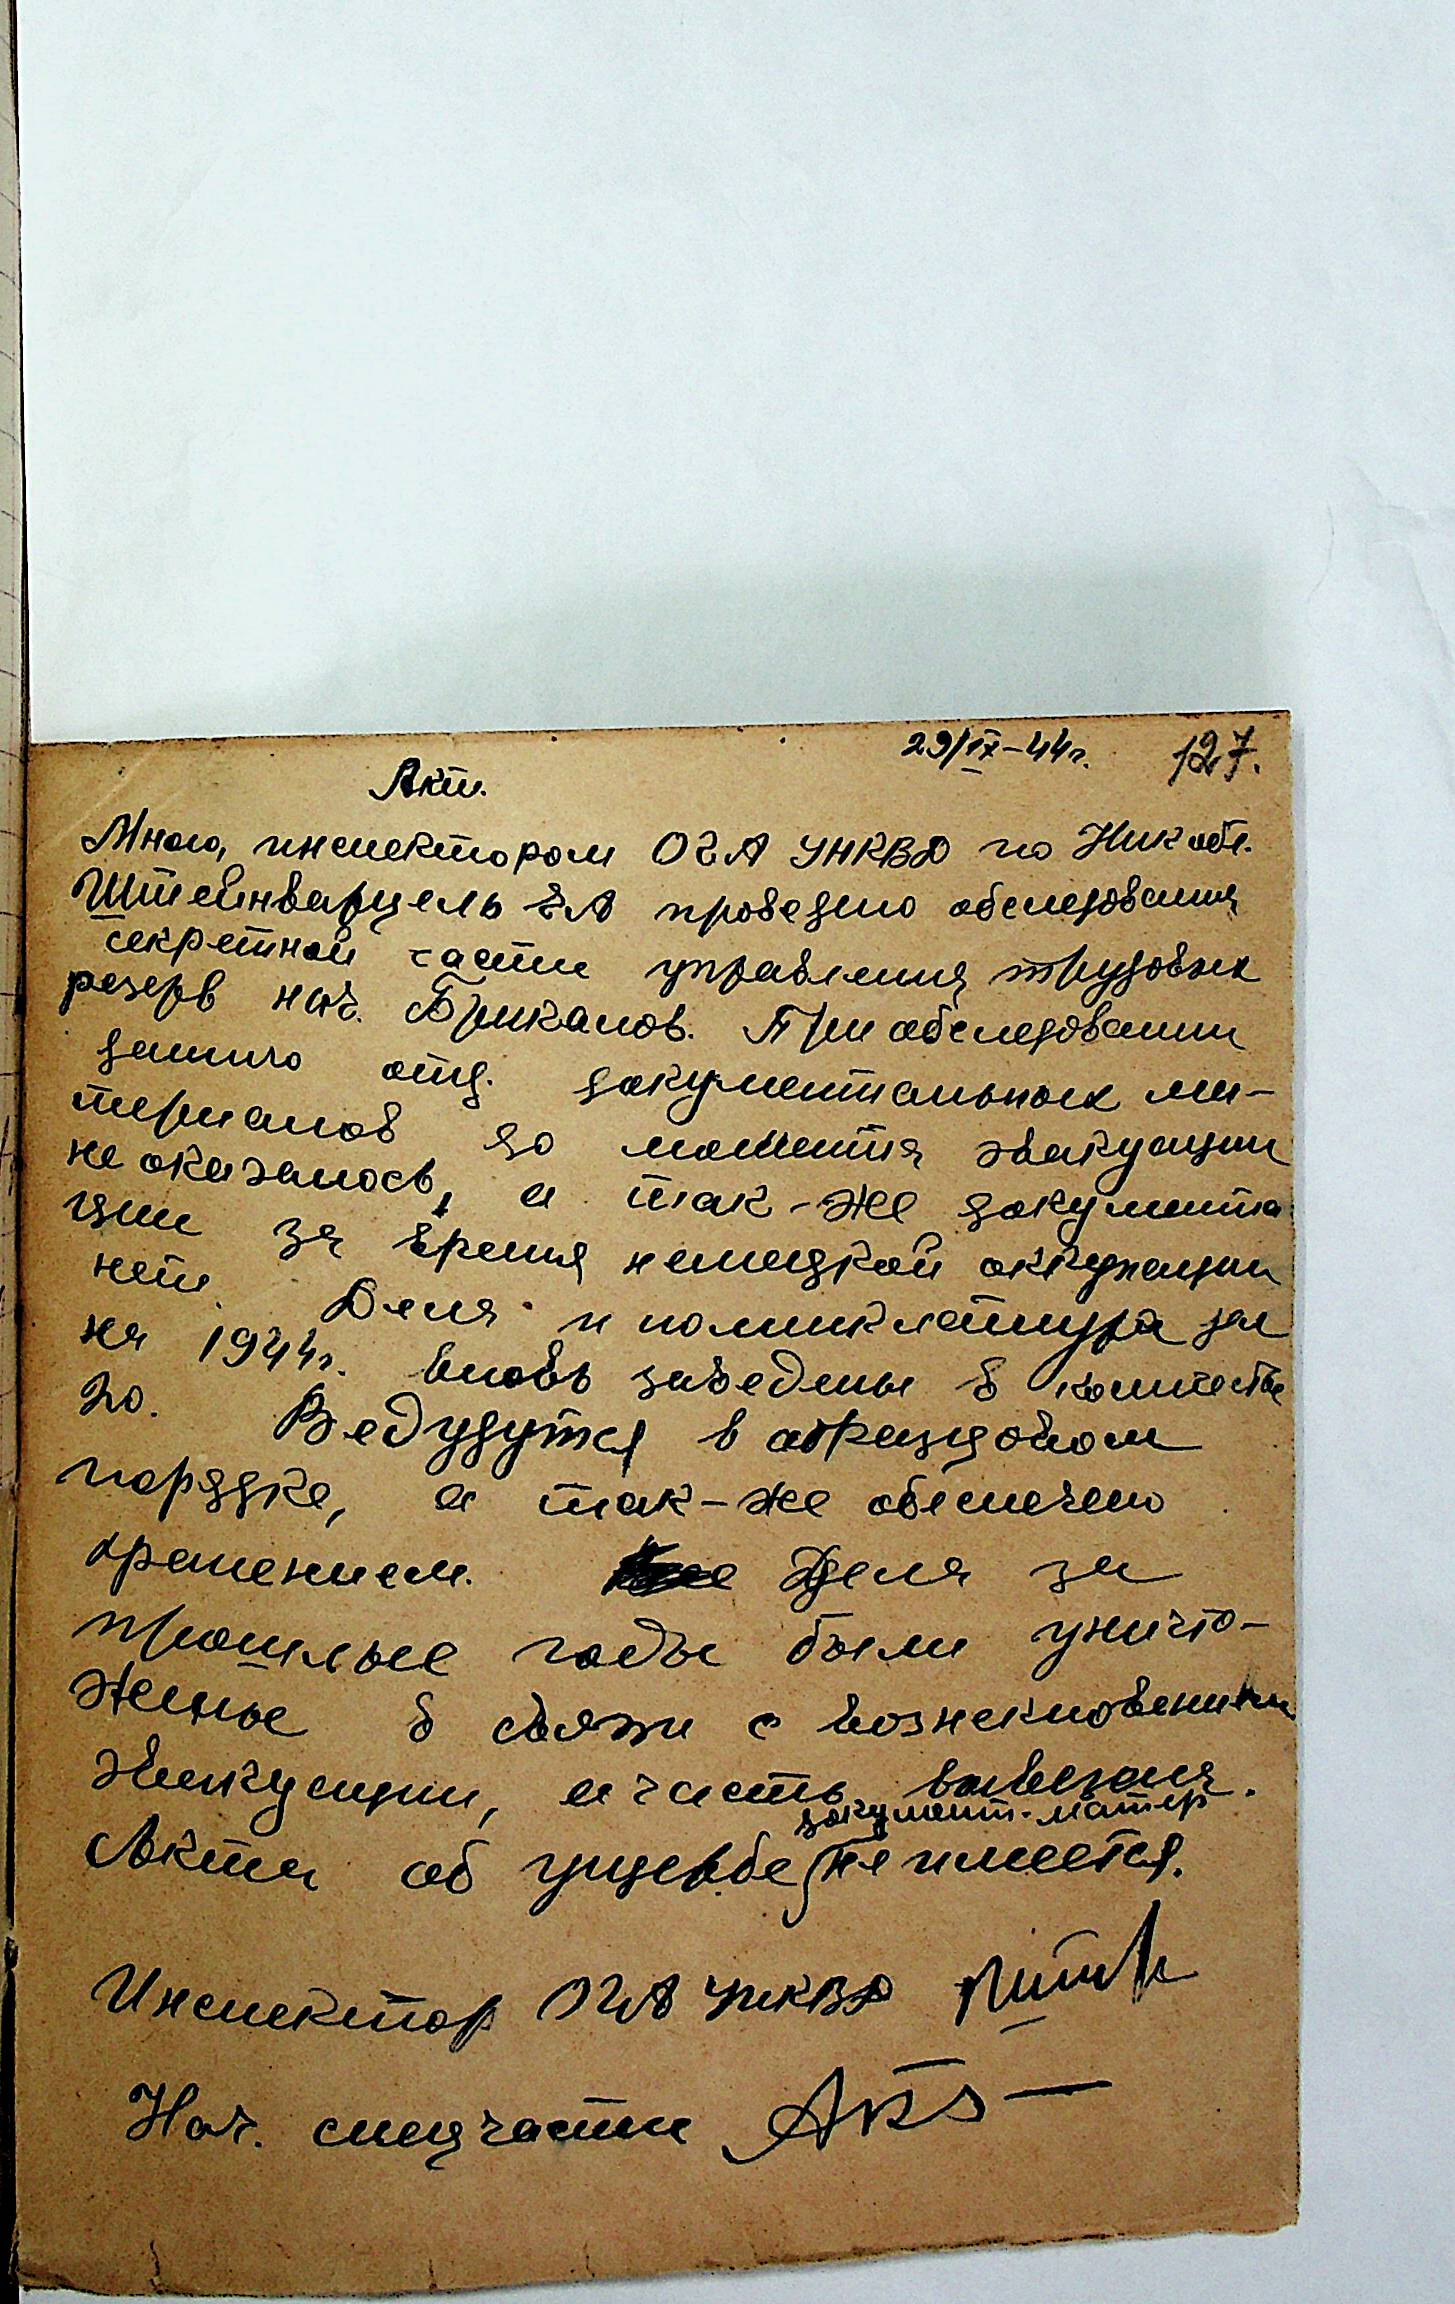 29/IX-44г. 127.
Акт.
Мною, инспектором ОГА УНКВД по Ник обл.
Штейнварцель ЕА проведено обследования
секретной части управления трудовых
резерв нач. Брикалов. При обследовании
данного отд. документальных ма-
териалов до момента эвакуации
не оказалось, а так-же документа
ции за время немецкой оккупации
нет. Дела и номиклатура зав
на 1944г. вновь заведены в количестве
20. Ведудутся в образцовом
порядке, а так-же обеспечено
хранением. Дела за
прошлые годы были уничто-
жены в связи с вознекновением
эвакуации, а часть вывезена.
документ. матер
Акта об ущербе не имеется.
Инспектор ОГА УНКВД
Нач. спецчасти